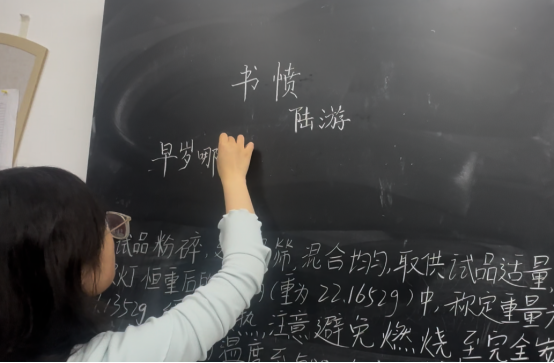 书愤
陆游
早岁哪
试品粉碎, 筛,混合均匀,取供试品适量,
灯恒重后的 (重为22.1652g)中,称定重量
.1352g 热,注意避免燃烧至完全
温度至